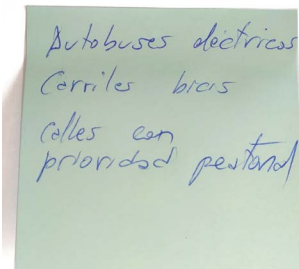 Autobuses eléctricos
Carriles bicis
Calles con
prioridad peatonal